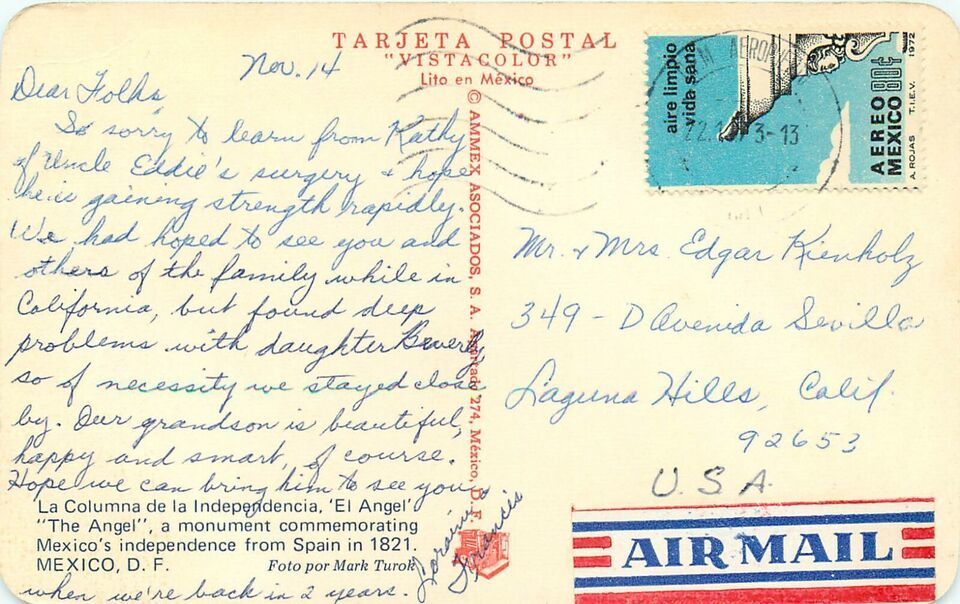 TARJETA POSTAL
"VISTACOLOR"
Lito en México
Nov. 14
Dear Folks,
So sorry to learn from Kathy
of Uncle Eddie's surgery & hope
he is gaining strength rapidly.
We had hoped to see you and
others of the family while in
California, but found deep
problems with daughter Beverly
so of necessity we stayed close
by. Our grandson is beautiful,
happy and smart, of course.
Hope we can bring him to see you
when we're back in 2 years.
Loraine
Francis
La Columna de la Independencia, 'El Angel'
"The Angel", a monument commemorating
Mexico's independence from Spain in 1821.
MEXICO, D. F. Foto por Mark Turok
© AMMEX ASOCIADOS, S. A. Apartado 274, México, D. F.
aire limpio
vida sana
AEREO
MEXICO 80¢
1972
A. ROJAS T.I.E.V.
M AEROP
3-13
Mr. & Mrs. Edgar Kienholz
349 - D Avenida Sevilla
Laguna Hills, Calif.
92653
U.S.A.
AIR MAIL